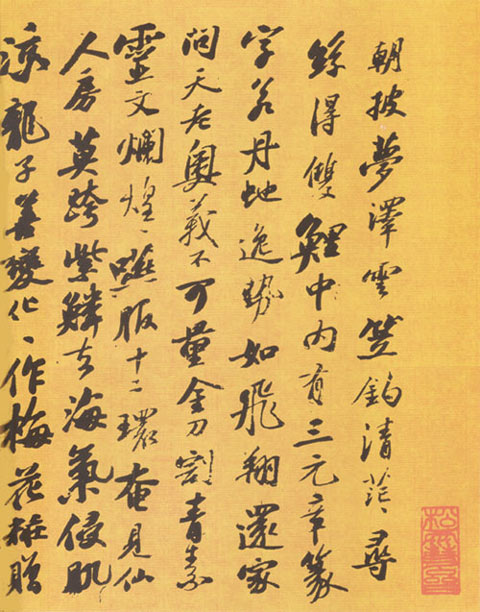 朝披夢澤雲笠釣清茫〻尋
絲得雙鯉中內有三元章篆
字若丹虵逸勢如飛翔還家
問天老奧義不可量金刀割青素
靈文爛煌〻嚥服十二環奄見仙
人房莫跨紫鱗去海氣侵肌
涼龍子善變化〻作梅花粧贈